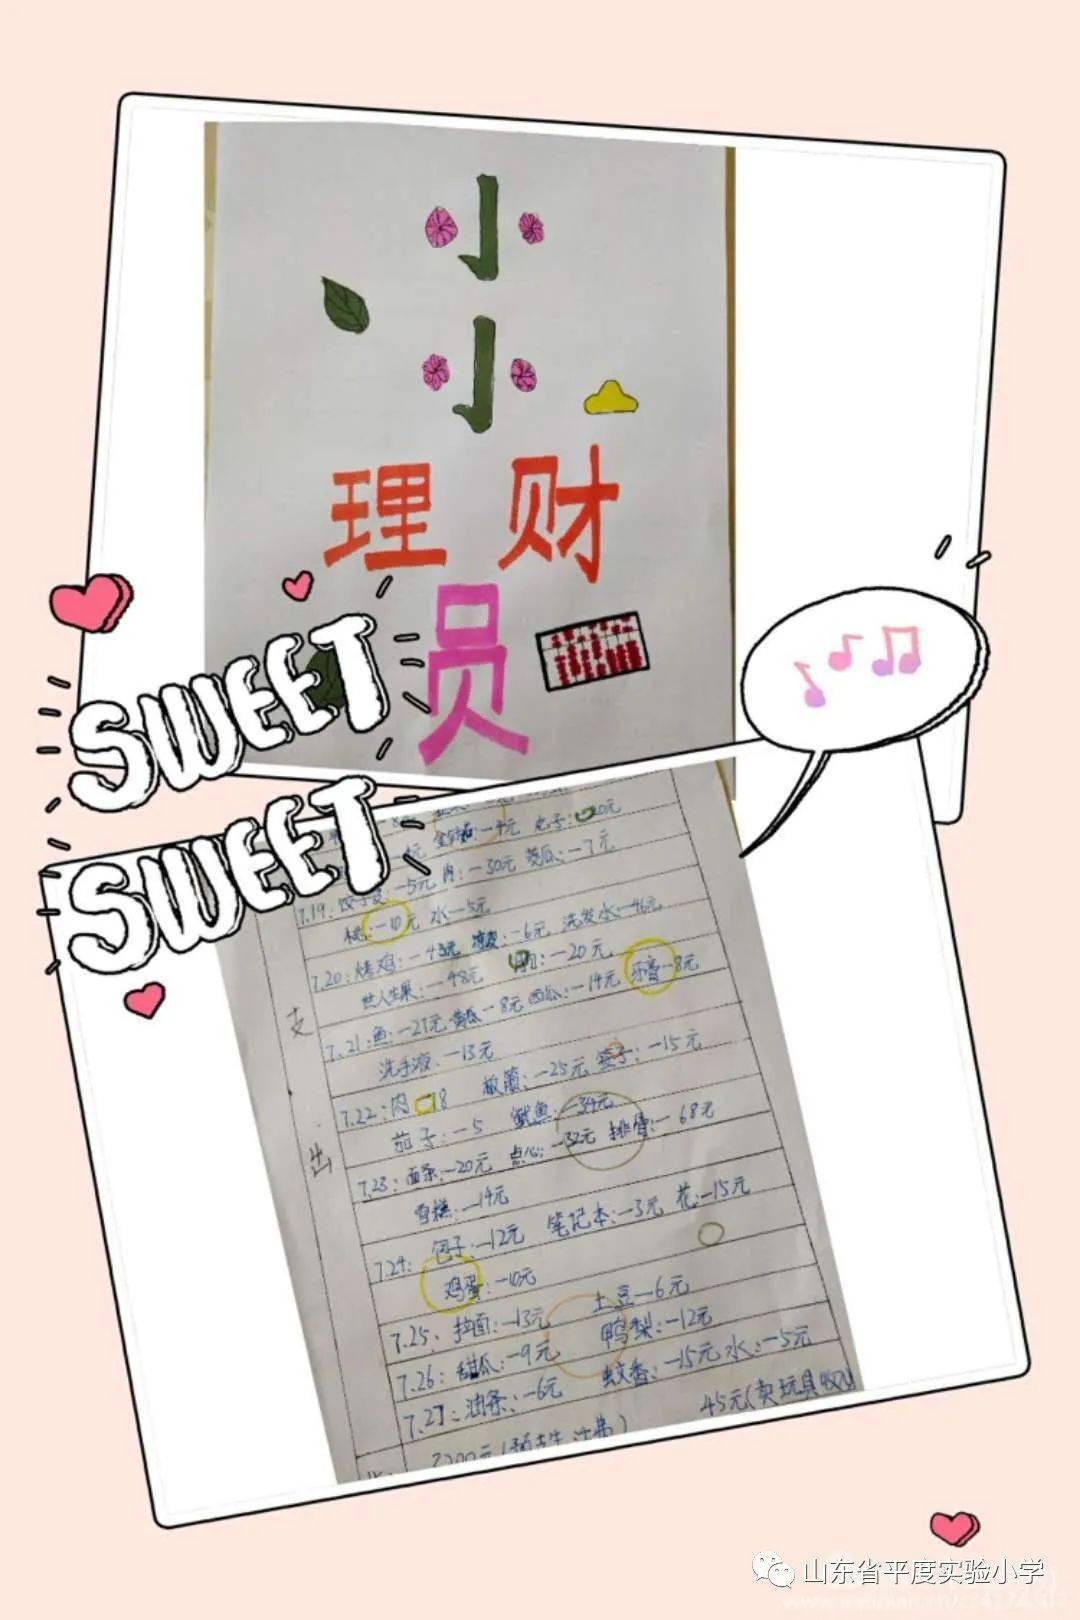 小
小
理财
员
SWEET
SWEET
-4元 -20元
7.19:饺子皮:-5元 肉:-30元 -7元
桃:-10元 水-5元
7.20:烤鸡:-43元 -6元 洗发水:-46元
-48元 -20元
7.21:鱼:-27元 黄瓜-8元 西瓜:-14元 牙膏-8元
洗手液:-13元
7.22:肉 18 -25元 -15元
茄子:-5 鱿鱼:-34元
7.23:面条:-20元 点心:-32元 排骨:-68元
雪糕:-14元
7.24: 包子:-12元 笔记本:-3元 花:-15元
鸡蛋:-10元
7.25: 拉面:-13元 土豆-6元
7.26:甜瓜:-9元 鸭梨:-12元
7.27:油条:-6元 蚊香:-15元 水:-5元
45元(卖玩具
支
出
山东省平度实验小学